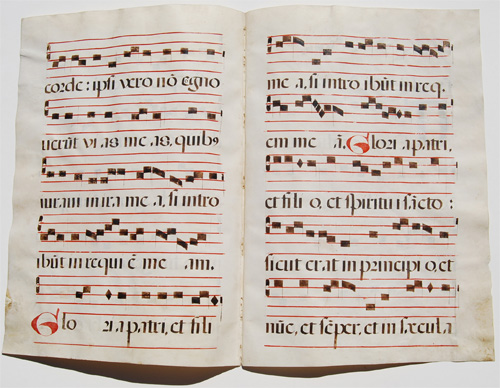 corde: ipsi vero nō cg̃no
uerūt vias meas, quibꝰ
iuraui in ira me a, si intro
ibūt in requi ē me am.
Glo ria patri, et fili
me a, si intro ibūt in req.
em me ā. Gloria patri,
et fili o, et spiritui sācto:
sicut erat in principi o, et
nūc, et sēper, et in sæcula